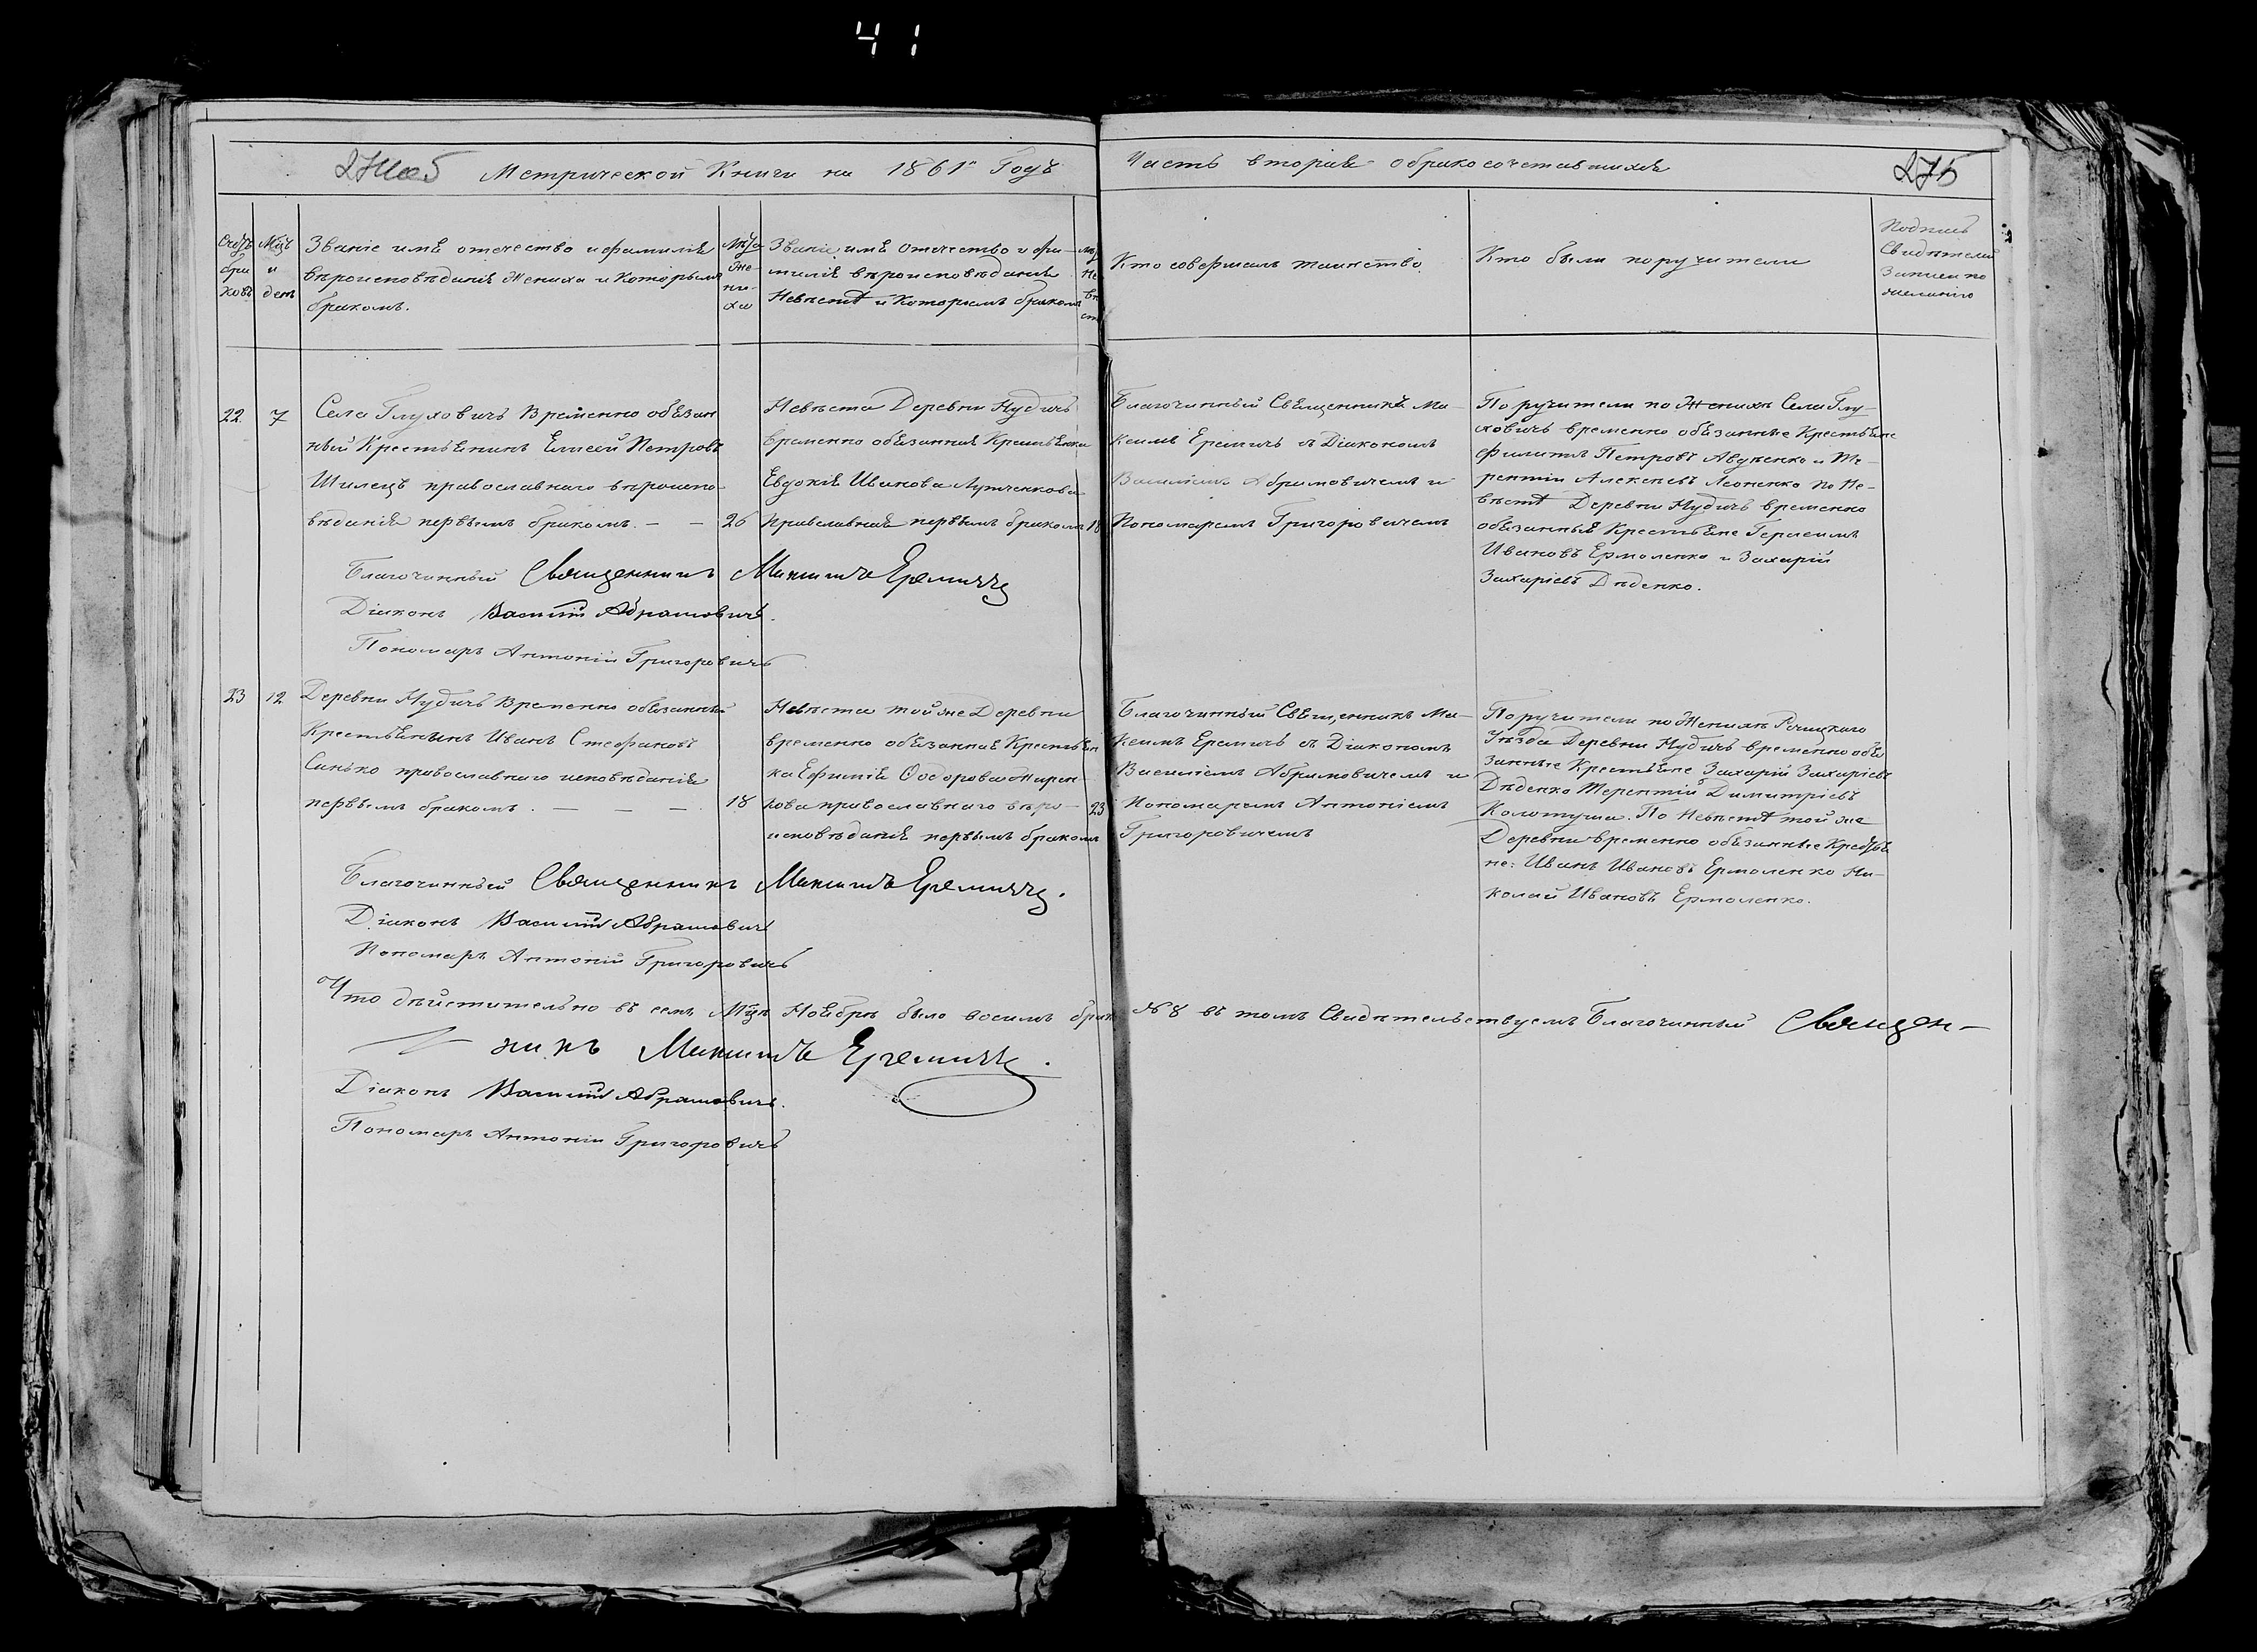 41
Метрической Книги на 1861й Годъ
Часть вторая о бракосочетавшихся
275
Счетъ браковъ
Мѣцъ и день
Званіе имя отечество и фамилія
вѣроисповѣданіе Жениха и Которымъ
бракомъ.
Лѣта Жениха
Званіе имя отечество и фа-
милія вѣроисповѣданіе
Невѣсты и Которымъ бракомъ
Кто совершалъ таинство
Кто были поручители
Подпись
Свидѣтелей
Записи по
желанію
22.
7
Села Глуховичъ Временно обязан
ный Крестьянинъ Елисей Петровъ
Шилецъ православнаго вѣроиспо
вѣданія первымъ бракомъ. — —
26
Невѣста Деревни Нудичъ
временно обязанная Крестьянка
Евдокія Иванова Лутченкова
правславная первымъ бракомъ
18
Благочинный Священникъ Ма-
ксимъ Еремичъ съ Діакономъ
Василіемъ Абрамовичемъ и
Пономаремъ Григоровичемъ
Поручители по Женихѣ Села Глу-
ховичъ временно обязанные Крестьяне
Филиппъ Петровъ Авденко и Те-
рентій Алексѣевъ Леоненко по Не-
вѣстѣ Деревни Нудичъ временно
обязанные Крестьяне Герасимъ
Ивановъ Ермоленко и Захарій
Захаріевъ Дѣденко.
Благочинный Священникъ Максимъ Еремичъ
Діаконъ Василій Абрамовичъ.
Пономарь Антоній Григоровичъ
23
12
Деревни Нудичъ Временно обязанный
Крестьянинъ Иванъ Стефановъ
Санько провославнаго исповѣданія
первымъ бракомъ. — — —
18
Невѣста той же Деревни
временно обязанная Крестьян
ка Ефимія Ѳодорова Мирон
кова православнаго вѣро-
исповѣданія первымъ бракомъ
23
Благочинный Священникъ Ма-
ксимъ Еремичъ съ Діакономъ
Василіемъ Абрамовичемъ и
Пономаремъ Антоніемъ
Григоровичемъ
Поручители по Женихѣ Речицкаго
Уѣзда Деревни Нудичъ временно обя
занные Крестьяне Захарій Захаріевъ
Дѣденко Терентій Димитріевъ
Колотуша. По Невѣстѣ той же
Деревни временно обязанные Крестья
не: Иванъ Ивановъ Ермоленко Ни-
колай Ивановъ Ермоленко.
Благочинный Священникъ Максимъ Еремичъ.
Діаконъ Василій Абрамовичъ
Пономарь Антоній Григоровичъ
Что дѣйстительно въ семъ Мцѣ Ноябрѣ было восимъ брак № 8 въ томъ Свидѣтельствуемъ Благочинный Священ-
никъ Максимъ Еремичъ.
Діаконъ Василій Абрамовичъ.
Пономарь Антоній Григоровичъ